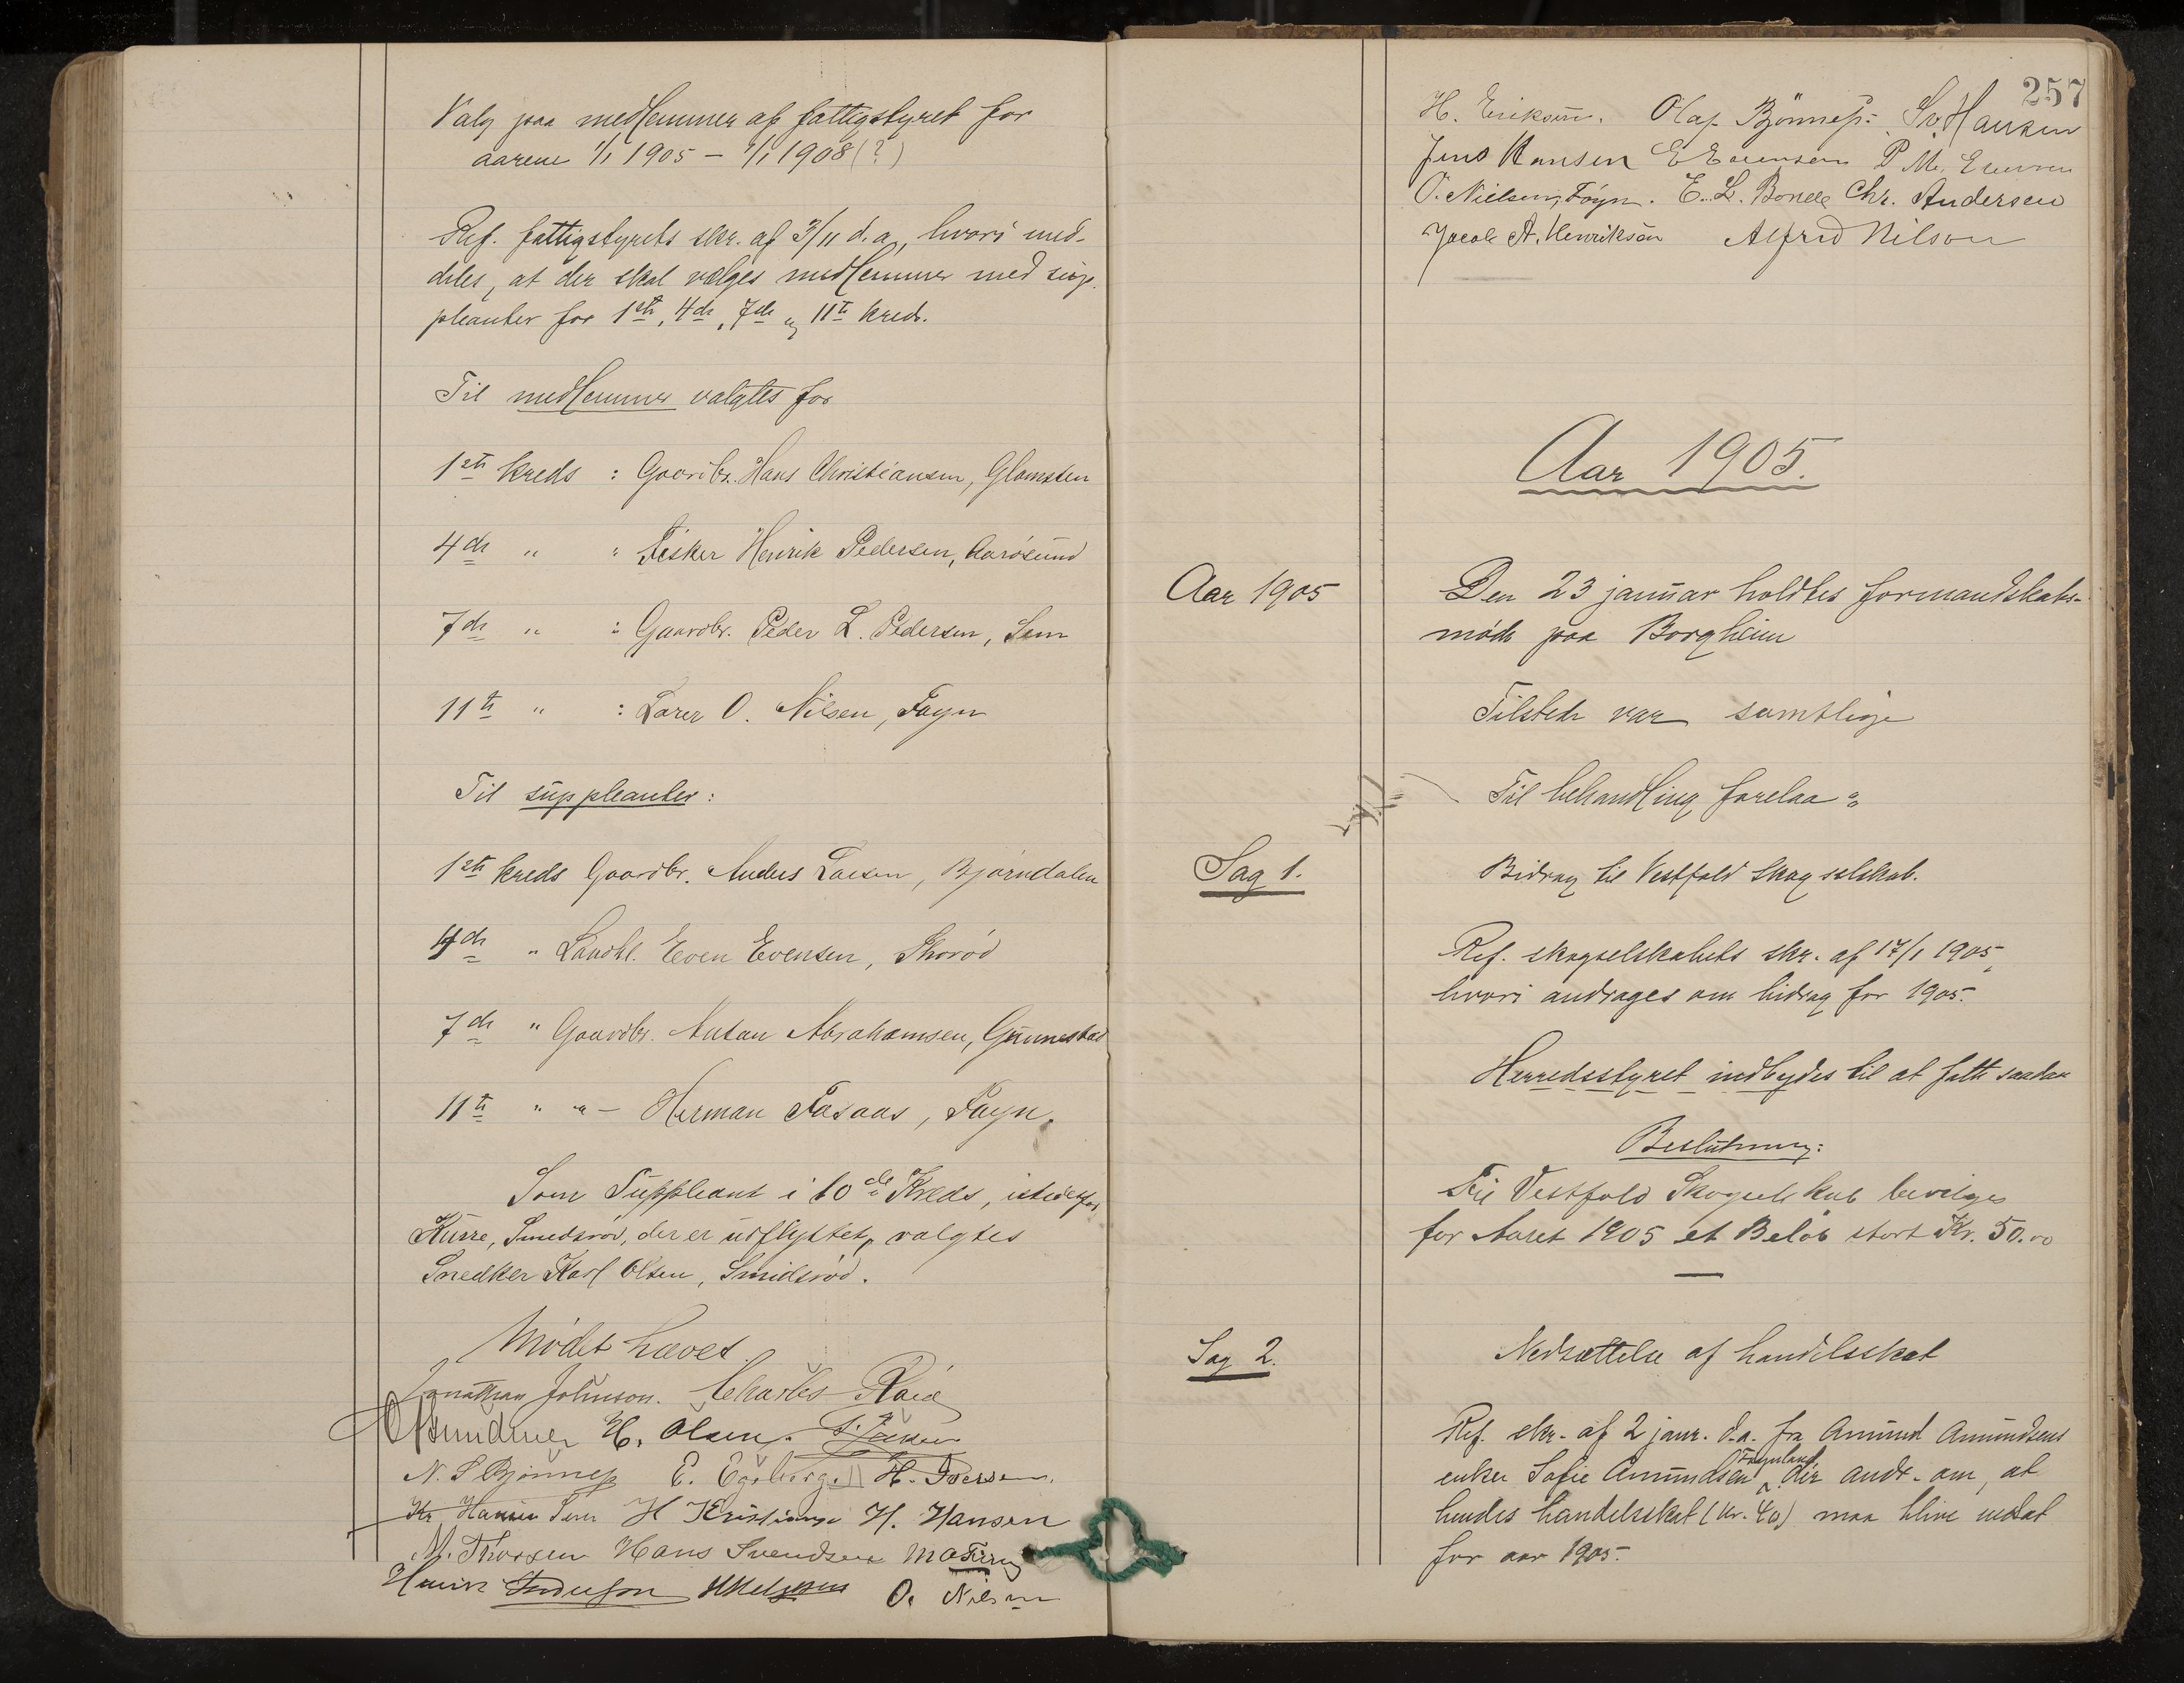 Valg paa medlemmer af fattigstyret for
aarene 1/1 1905 – 1/1 1908 (?)
Ref. fattigstyrets skr. af 3/11 d.a., hvori med-
deles, at der skal vælges medlemmer med sup-
pleanter for 1ste, 4de, 7de og 11te kreds.
Til medlemmer valgtes for
1ste kreds : Gaardbr. Hans Christiansen, Glomsten
4de " " Fisker Henrik Pedersen, Aarøsund
7de " : Gaardbr. Peder L. Pedersen, Sem
11te " : Lærer O. Nilsen, Føyn
Til suppleanter:
1ste kreds Gaardbr. Anders Larsen, Bjørndalen
4de " Landhl. Even Evensen, Skorød
7de " Gaardbr. Anton Abrahamsen, Gunnestad
11te " " – Herman Faxaas, Føyn.
Som Suppleant i 10de Kreds, istedenfor
Kurre, Smedsrød, der er udflyttet, valgtes
Snedker Karl Olsen, Smidsrød.
Mødet hævet.
Jonathan Johnson. Charles Roed
H. Olsen.
N. S Bjønnes E. Egeberg H. Iversen.
Kr. Hansen Sem H Kristiansen H. Hansen
M. Thorsen Hans Svendsen
Henrik O. Nilsen
257
H. Eriksen. Olaf Bjønnes. Sv. Hansen
Jens Hansen E Evensen P. M.
O. Nielsen, Føyn. E. L. Chr. Andersen
Jacob A. Henriksen Alfred Nilson
Aar 1905.
Aar 1905
Den 23 januar holdtes formandskabs-
møde paa Borgheim
Tilstede var samtlige
Til behandling forelaa :
Sag 1.
Bidrag til Vestfold Skogselskab.
Ref. skogselskabets skr. af 17/1 1905,
hvori andrages om bidrag for 1905.
Herredsstyret indbydes til at fatte saadan
Beslutning:
Til Vestfold Skogselskab bevilges
for Aaret 1905 et Beløb stort Kr. 50.00
Sag 2.
Nedsættelse af handelsskat
Ref. skr. af 2 janr. d.a. fra Amund Amundsens
enke Sofie Amundsen Føynland, der andr. om, at
hendes handelsskat (kr. 60) maa blive nedsat
for aar 1905.